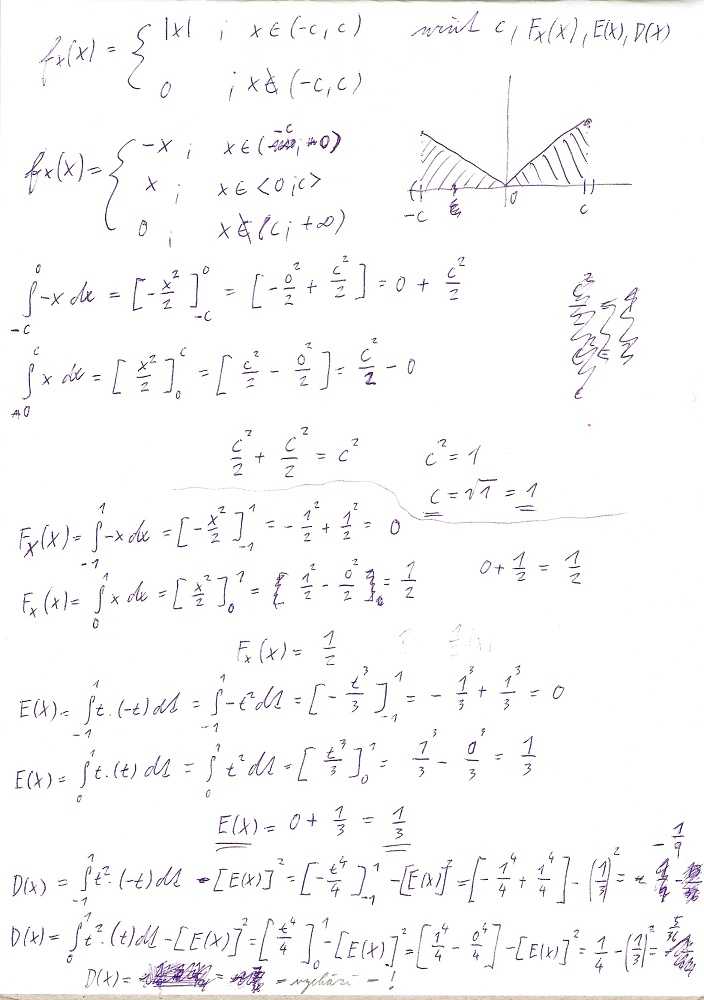 f_X(x) = { |x| ; x ∈ (-c, c) c, F_X(x), E(X), D(X)
0 ; x ∉ (-c, c)
f_X(x) = { -x ; x ∈ (-c; 0)
x ; x ∈ <0; c>
0 ; x ∉ (c; +∞)
-c 0 c
∫_{-c}^{0} -x dx = [-x²/2]_{-c}^{0} = [-0²/2 + c²/2] = 0 + c²/2
∫_{0}^{c} x dx = [x²/2]_{0}^{c} = [c²/2 - 0²/2] = c²/2 - 0
c²/2 + c²/2 = c² c² = 1
c = √1 = 1
F_X(x) = ∫_{-1}^{1} -x dx = [-x²/2]_{-1}^{1} = -1²/2 + 1²/2 = 0
F_X(x) = ∫_{0}^{1} x dx = [x²/2]_{0}^{1} = [1²/2 - 0²/2] = 1/2 0 + 1/2 = 1/2
F_X(x) = 1/2
E(X) = ∫_{-1}^{1} t·(-t) dt = ∫_{-1}^{1} -t² dt = [-t³/3]_{-1}^{1} = -1³/3 + 1³/3 = 0
E(X) = ∫_{0}^{1} t·(t) dt = ∫_{0}^{1} t² dt = [t³/3]_{0}^{1} = 1³/3 - 0³/3 = 1/3
E(X) = 0 + 1/3 = 1/3
D(X) = ∫_{-1}^{1} t²·(-t) dt - [E(X)]² = [-t⁴/4]_{-1}^{1} - [E(X)]² = [-1⁴/4 + 1⁴/4] - (1/3)² = -1/9
D(X) = ∫_{0}^{1} t²·(t) dt - [E(X)]² = [t⁴/4]_{0}^{1} - [E(X)]² = [1⁴/4 - 0⁴/4] - [E(X)]² = 1/4 - (1/3)² = 5/36
D(X) = = vychází - !